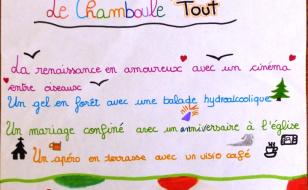 Le Chamboule Tout
La renaissance en amoureux avec un cinéma
entre oiseaux
Un gel en forêt avec une balade hydroalcoolique
Un mariage confiné avec un anniversaire à l'église
Un apéro en terrasse avec un visio café